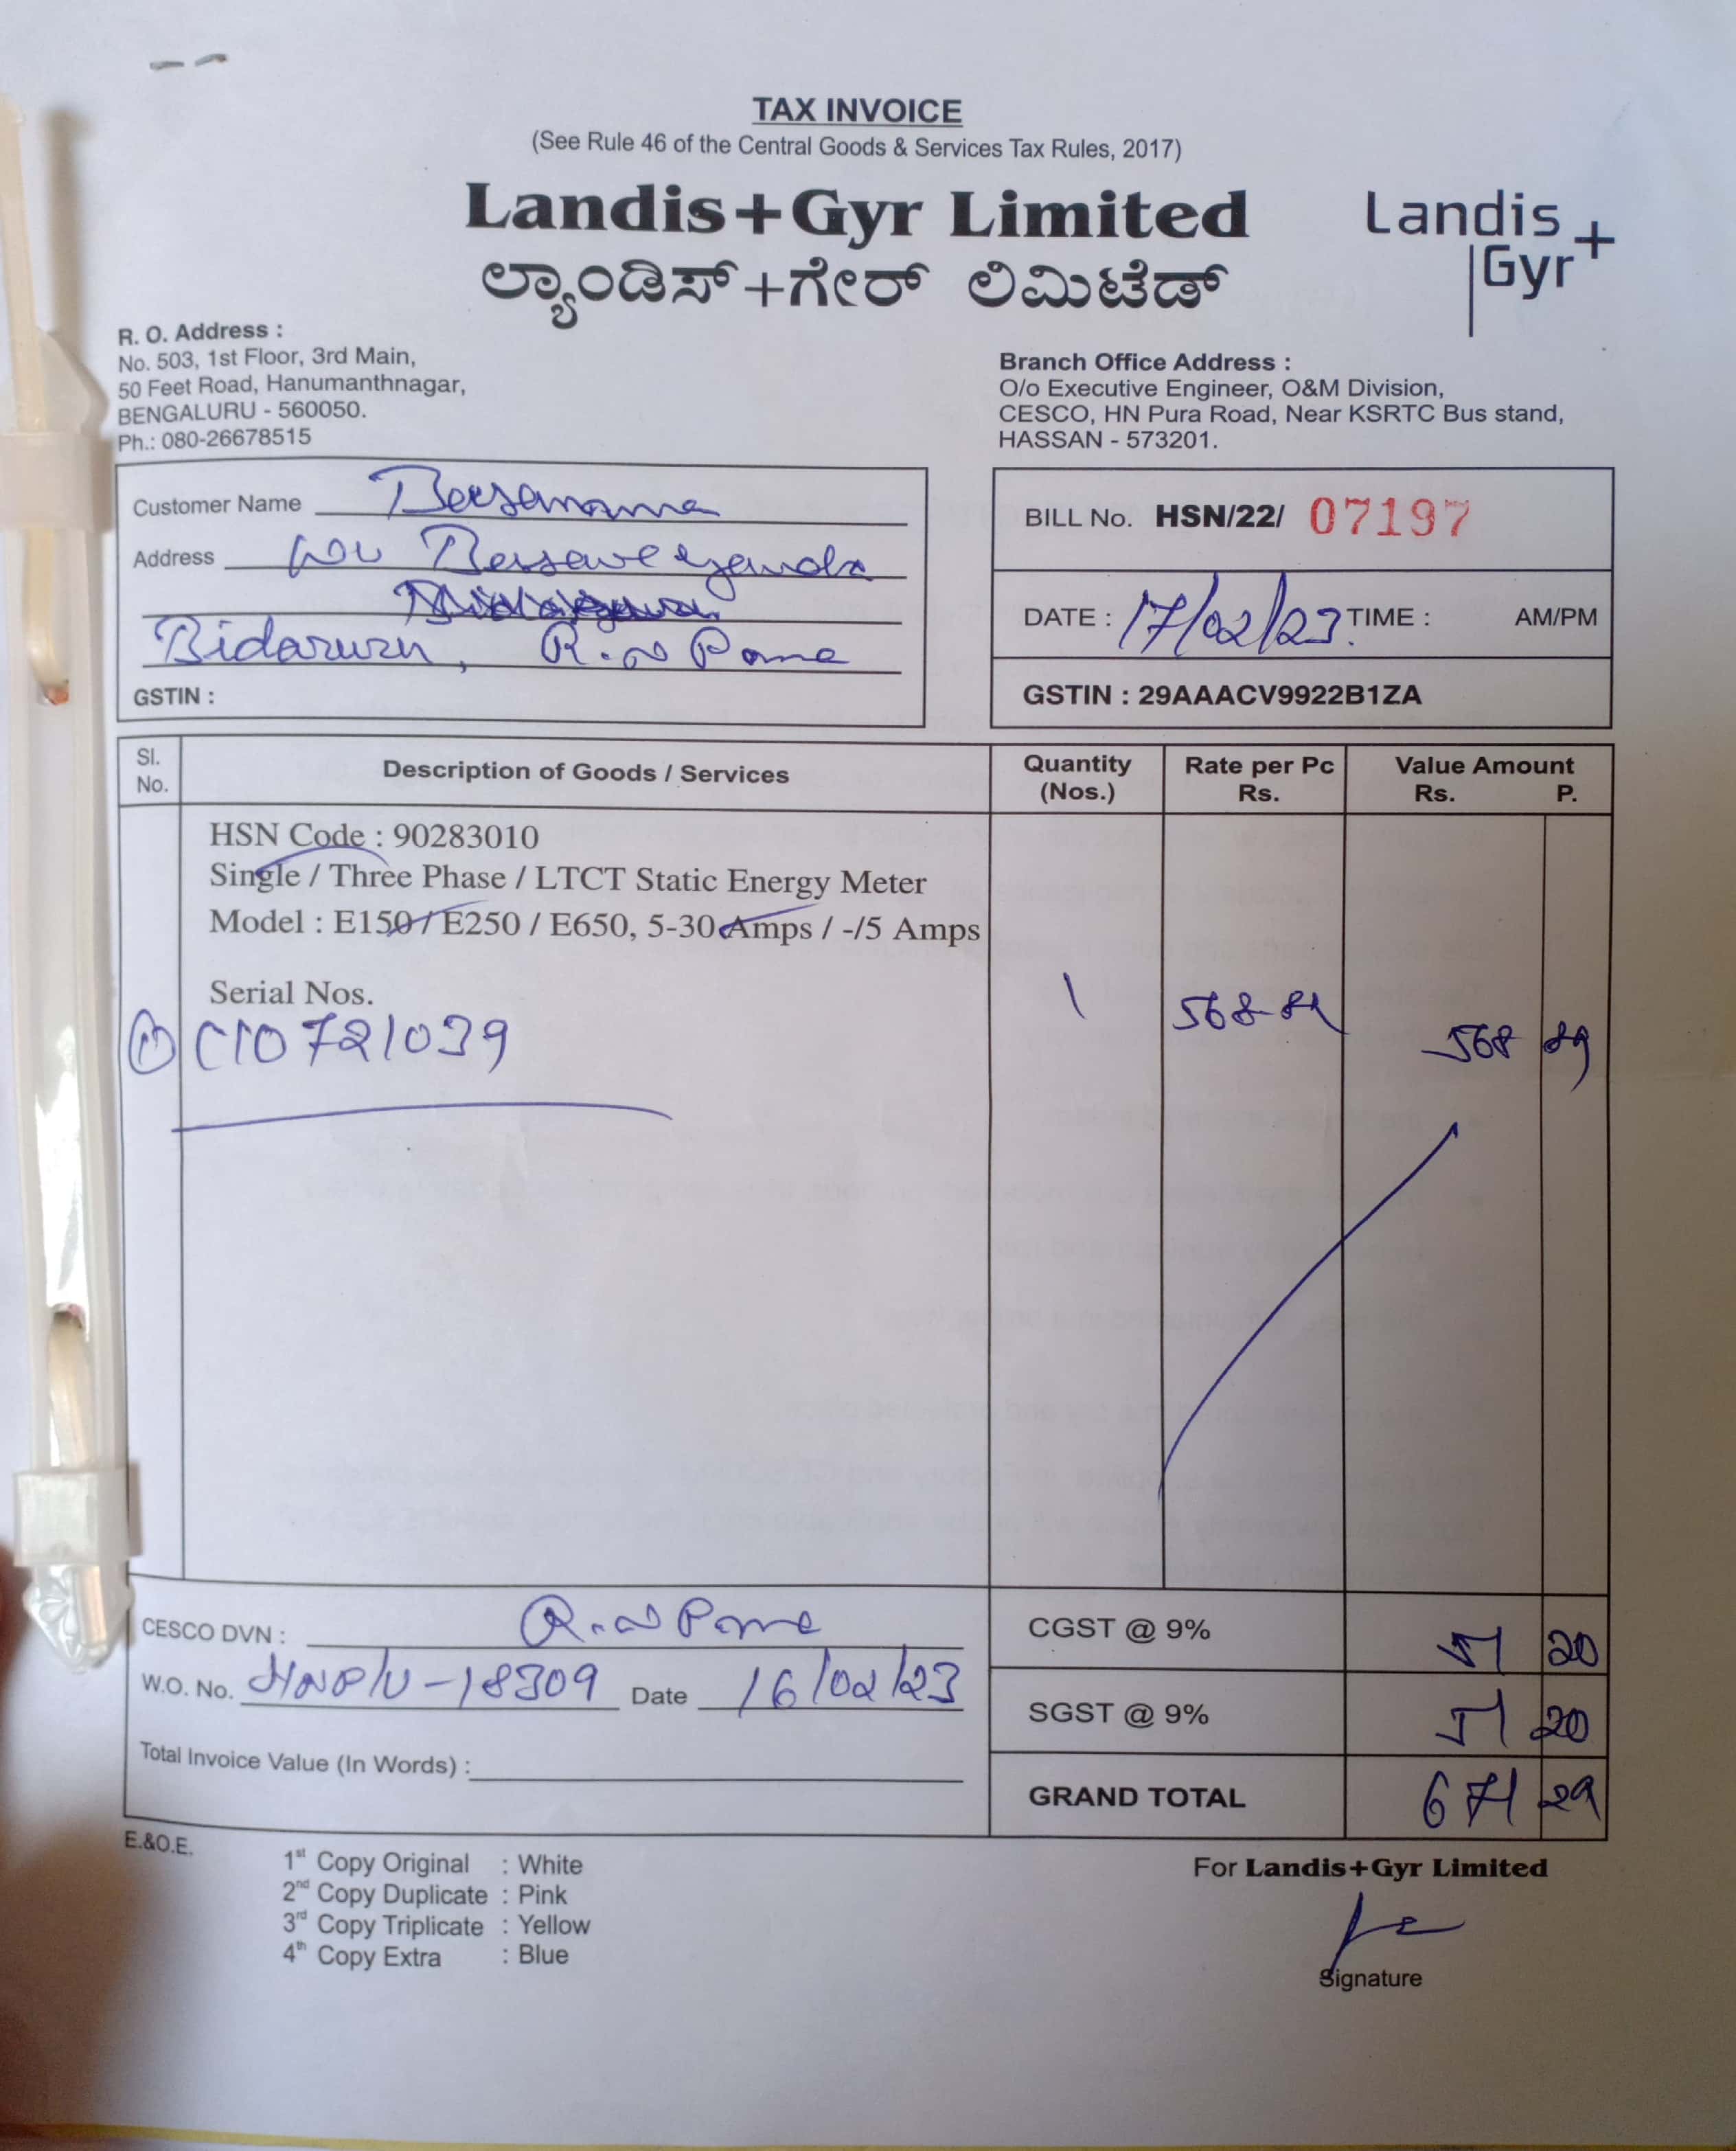 TAX INVOICE
(See Rule 46 of the Central Goods & Services Tax Rules, 2017)
Landis+Gyr Limited
ಲ್ಯಾಂಡಿಸ್+ಗೇರ್ ಲಿಮಿಟೆಡ್
Landis+
Gyr
R. O. Address :
No. 503, 1st Floor, 3rd Main,
50 Feet Road, Hanumanthnagar,
BENGALURU - 560050.
Ph.: 080-26678515
Branch Office Address :
O/o Executive Engineer, O&M Division,
CESCO, HN Pura Road, Near KSRTC Bus stand,
HASSAN - 573201.
Customer Name
Address
Bidaruru, R.N Pama
GSTIN :
BILL No. HSN/22/ 07197
DATE : 17/02/23. TIME : AM/PM
GSTIN : 29AAACV9922B1ZA
Sl. No. Description of Goods / Services Quantity (Nos.) Rate per Pc Rs. Value Amount Rs. P.
HSN Code : 90283010
Single / Three Phase / LTCT Static Energy Meter
Model : E150 / E250 / E650, 5-30 Amps / -/5 Amps
Serial Nos.
1 C10721039 1 568-89 568 89
CESCO DVN : R.N Pama
W.O. No. HNP/U-18309 Date 16/02/23
Total Invoice Value (In Words) :
CGST @ 9% 51 20
SGST @ 9% 51 20
GRAND TOTAL 671 29
E.&O.E.
1st Copy Original : White
2nd Copy Duplicate : Pink
3rd Copy Triplicate : Yellow
4th Copy Extra : Blue
For Landis+Gyr Limited
Signature